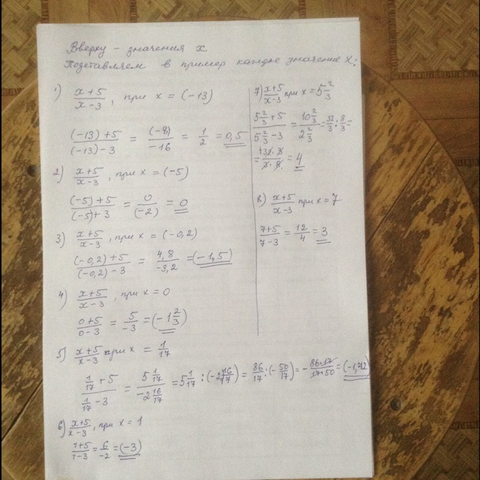 Вверху - значения x.
Подставляем в пример каждое значение x:
1) (x+5)/(x-3), при x = (-13)
((-13)+5)/((-13)-3) = (-8)/-16 = 1/2 = 0,5
2) (x+5)/(x-3), при x = (-5)
((-5)+5)/((-5)+3) = 0/(-2) = 0
3) (x+5)/(x-3), при x = (-0,2)
((-0,2)+5)/((-0,2)-3) = 4,8/-3,2 = (-1,5)
4) (x+5)/(x-3), при x = 0
(0+5)/(0-3) = 5/-3 = (-1 2/3)
5) (x+5)/(x-3) при x = 1/17
(1/17 + 5)/(1/17 - 3) = (5 1/17)/(-2 16/17) = 5 1/17 : (-2 16/17) = 86/17 : (-50/17) = -(86·17)/(17·50) = (-1,72)
6) (x+5)/(x-3), при x = 1
(1+5)/(1-3) = 6/-2 = (-3)
7) (x+5)/(x-3) при x = 5 2/3
(5 2/3 + 5)/(5 2/3 - 3) = (10 2/3)/(2 2/3) = 32/3 : 8/3 =
= 4
8) (x+5)/(x-3) при x = 7
(7+5)/(7-3) = 12/4 = 3